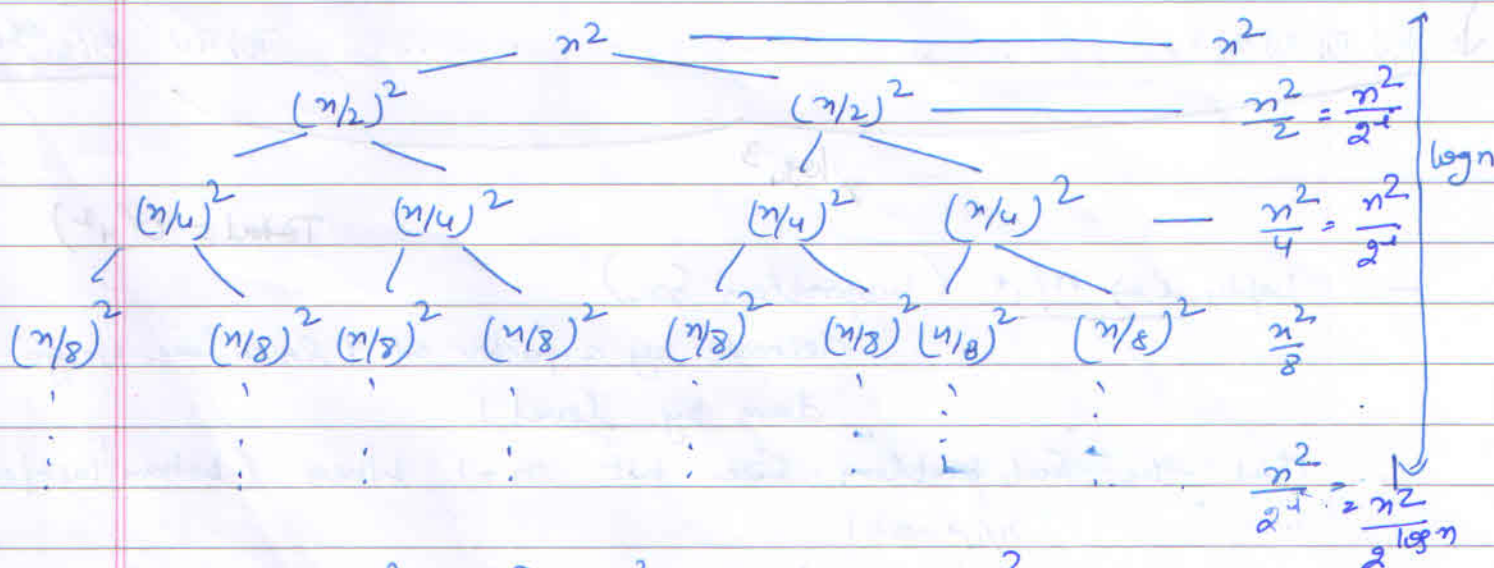 n² n²
(n/2)² (n/2)² n²/2 = n²/2^i
log n
(n/4)² (n/4)² (n/4)² (n/4)² n²/4 = n²/2^i
(n/8)² (n/8)² (n/8)² (n/8)² (n/8)² (n/8)² (n/8)² (n/8)² n²/8
n²/2^i = n²/2^log n